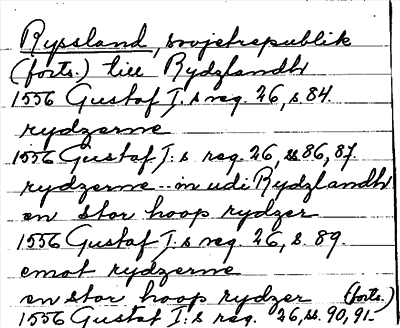 Ryssland, sovjetrepublik
(forts.) till Rydzlandh
1556 Gustaf I:s reg. 26, s. 84.
rydzerne
1556 Gustaf I:s reg. 26, ss 86, 87.
rydzerne - in udi Rydzlandh
en stor hoop rydzer
1556 Gustaf I:s reg. 26, s. 89.
emot rydzerne
en stor hoop rydzer (forts.)
1556 Gustaf I:s reg. 26, ss. 90, 91.